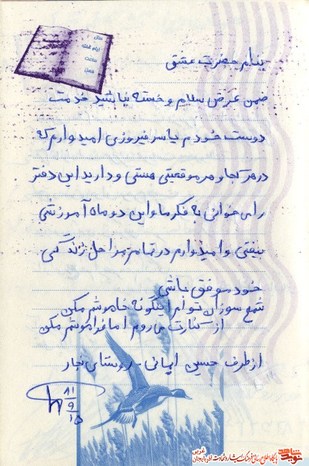 بنام حضرت عشق
ضمن عرض سلام و خسته نباشید خدمت
دوست خودم یاسر فیروزی امیدوارم که
در هر کجا و هر موقعیتی هستی و داری این دفتر
را می‌خوانی به فکر ما و این دو ماه آموزشی
بیفتی و امیدوارم در تمام مراحل زندگی
خود موفق باشی
شمع سوزان توام اینگونه خاموشم مکن
از کنارت می روم اما فراموشم مکن
از طرف حسین ایمانی - روستای نجار
۸۱
۹
۱۵
نوید شاهد